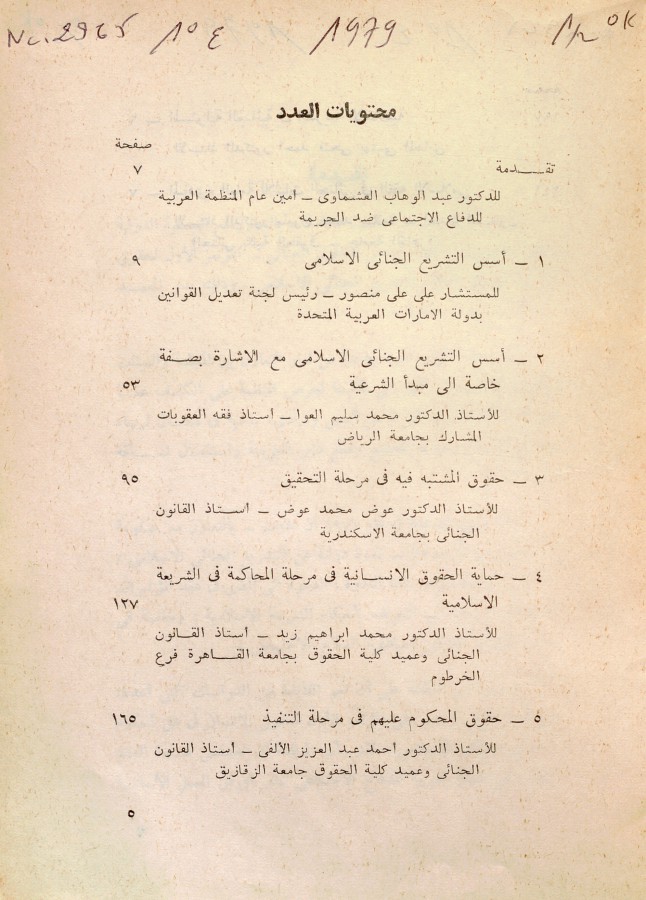 Nc. 2965 1979 OK
محتويات العدد
صفحة
تقـــدمة ٧
للدكتور عبد الوهاب العشماوى ــ امين عام المنظمة العربية
للدفاع الاجتماعى ضد الجريمة
١ ــ أسس التشريع الجنائى الاسلامى ٩
للمستشار على على منصور ــ رئيس لجنة تعديل القوانين
بدولة الامارات العربية المتحدة
٢ ــ أسس التشريع الجنائى الاسلامى مع الاشارة بصـفة
خاصة الى مبدأ الشرعية ٥٣
للأستاذ الدكتور محمد سليم العوا ــ استاذ فقه العقوبات
المشارك بجامعة الرياض
٣ ــ حقوق المشتبه فيه فى مرحلة التحقيق ٩٥
للأستاذ الدكتور عوض محمد عوض ــ اسـتاذ القانون
الجنائى بجامعة الاسكندرية
٤ ــ حماية الحقوق الانسـانية فى مرحلة المحاكمة فى الشريعة
الاسلامية ١٢٧
للأستاذ الدكتور محمد ابراهيم زيد ــ استاذ القـانون
الجنائى وعميد كلية الحقوق بجامعة القـاهرة فرع
الخرطوم
٥ ــ حقوق المحكوم عليهم فى مرحلة التنفيذ ١٦٥
للأستاذ الدكتور احمد عبد العزيز الألفى ــ استاذ القانون
الجنائى وعميد كلية الحقوق جامعة الزقازيق
٥